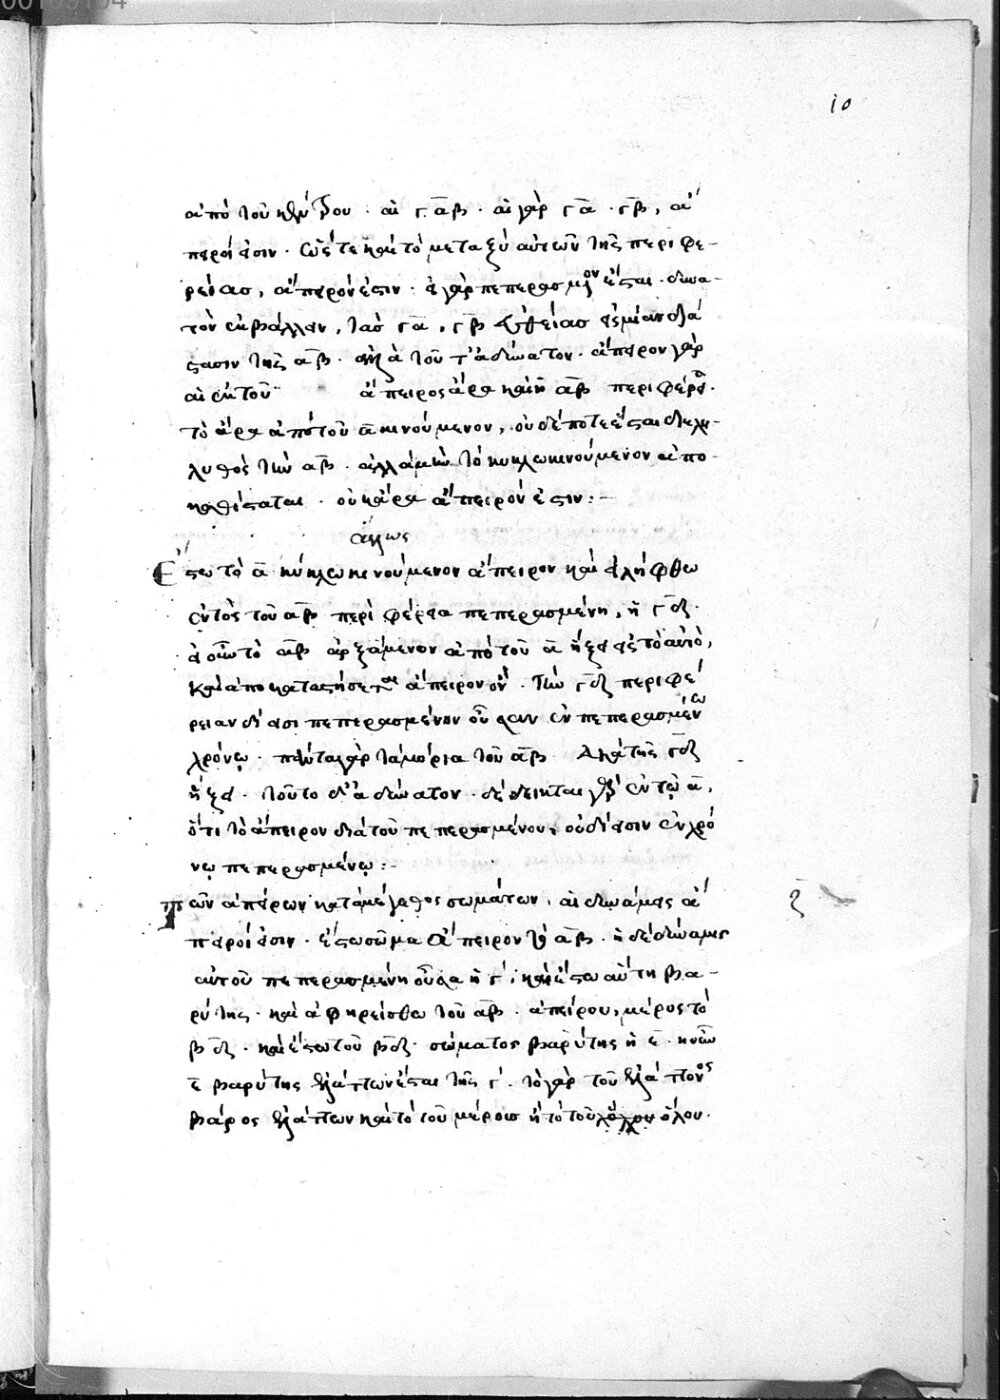 10
ἀπὸ τοῦ κέντρου · αἱ γ̅α̅β̅ · αἱ γὰρ γ̅α̅ · γ̅β̅, ἄ
πειροί εἰσιν · ὥστε καὶ τὸ μεταξὺ αὐτῶν τῆς περιφε-
ρείας, ἄπειρόν ἐστιν · εἰ γὰρ πεπερασμένον ἔσται · δυνα-
τὸν ἐκβάλλειν, τὰς γ̅α̅, γ̅β̅ εὐθείας
στασιν τῆς α̅β̅ · ἀλλὰ τοῦτ' ἀδύνατον · ἄπειρον γὰρ
αἱ ἐκ τοῦ ἄπειρος ἄρα καὶ ἡ α̅β̅ περιφέρεια ·
τὸ ἄρα ἀπὸ τοῦ α̅ κινούμενον, οὐδέποτε ἔσται διελη-
λυθὸς τὴν α̅β̅ · ἀλλὰ μὴν τὸ κύκλω κινούμενον ἀπο-
καθίσταται · οὐκ ἄρα ἄπειρόν ἐστιν :-
ἄλλως
Ἔστω τὸ α̅ κύκλω κινούμενον ἄπειρον καὶ εἰλήφθω
ἐντὸς τοῦ α̅β̅ περιφέρεια πεπερασμένη, ἡ γ̅δ̅ ·
ἐὰν οὖν τὸ α̅β̅ ἀρξάμενον ἀπὸ τοῦ α̅ ἥξει εἰς τὸ αὐτὸ,
καὶ ἀποκαταστήσεται ἄπειρον ὂν · τὴν γ̅δ̅ περιφέ
ρειαν δίεισι πεπερασμένην οὖσαν ἐν πεπερασμένω
χρόνῳ · πάντα γὰρ τὰ μόρια τοῦ α̅β̅ κατὰ τῆς γ̅δ̅
ἥξει · τοῦτο δ' ἀδύνατον · δέδεικται γὰρ ἐν τῷ α̅,
ὅτι τὸ ἄπειρον διὰ τοῦ πεπερασμένου, οὐ δίεισιν ἐν χρό
νῳ πεπερασμένῳ :-
Τῶν ἀπείρων κατὰ μέγεθος σωμάτων, αἱ δυνάμεις ἄ
ζ
πειροί εἰσιν · ἔστω σῶμα ἄπειρον τὸ α̅β̅ · ἡ δὲ δύναμις
αὐτοῦ πεπερασμένη οὖσα ἡ γ̅, καὶ ἔστω αὕτη βα-
ρύτης · καὶ ἀφῃρείσθω τοῦ α̅β̅ · ἀπείρου, μέρος τὸ
β̅δ̅ · καὶ ἔστω τοῦ β̅δ̅ · σώματος βαρύτης ἡ ε̅ · ἡ οὖν
ε̅ βαρύτης ἐλάττων ἔσται τῆς γ̅ · τὸ γὰρ τοῦ ἐλάττονος
βάρος ἐλάττων καὶ τὸ τοῦ μέρους ἢ τὸ τοῦ ὅλου ·